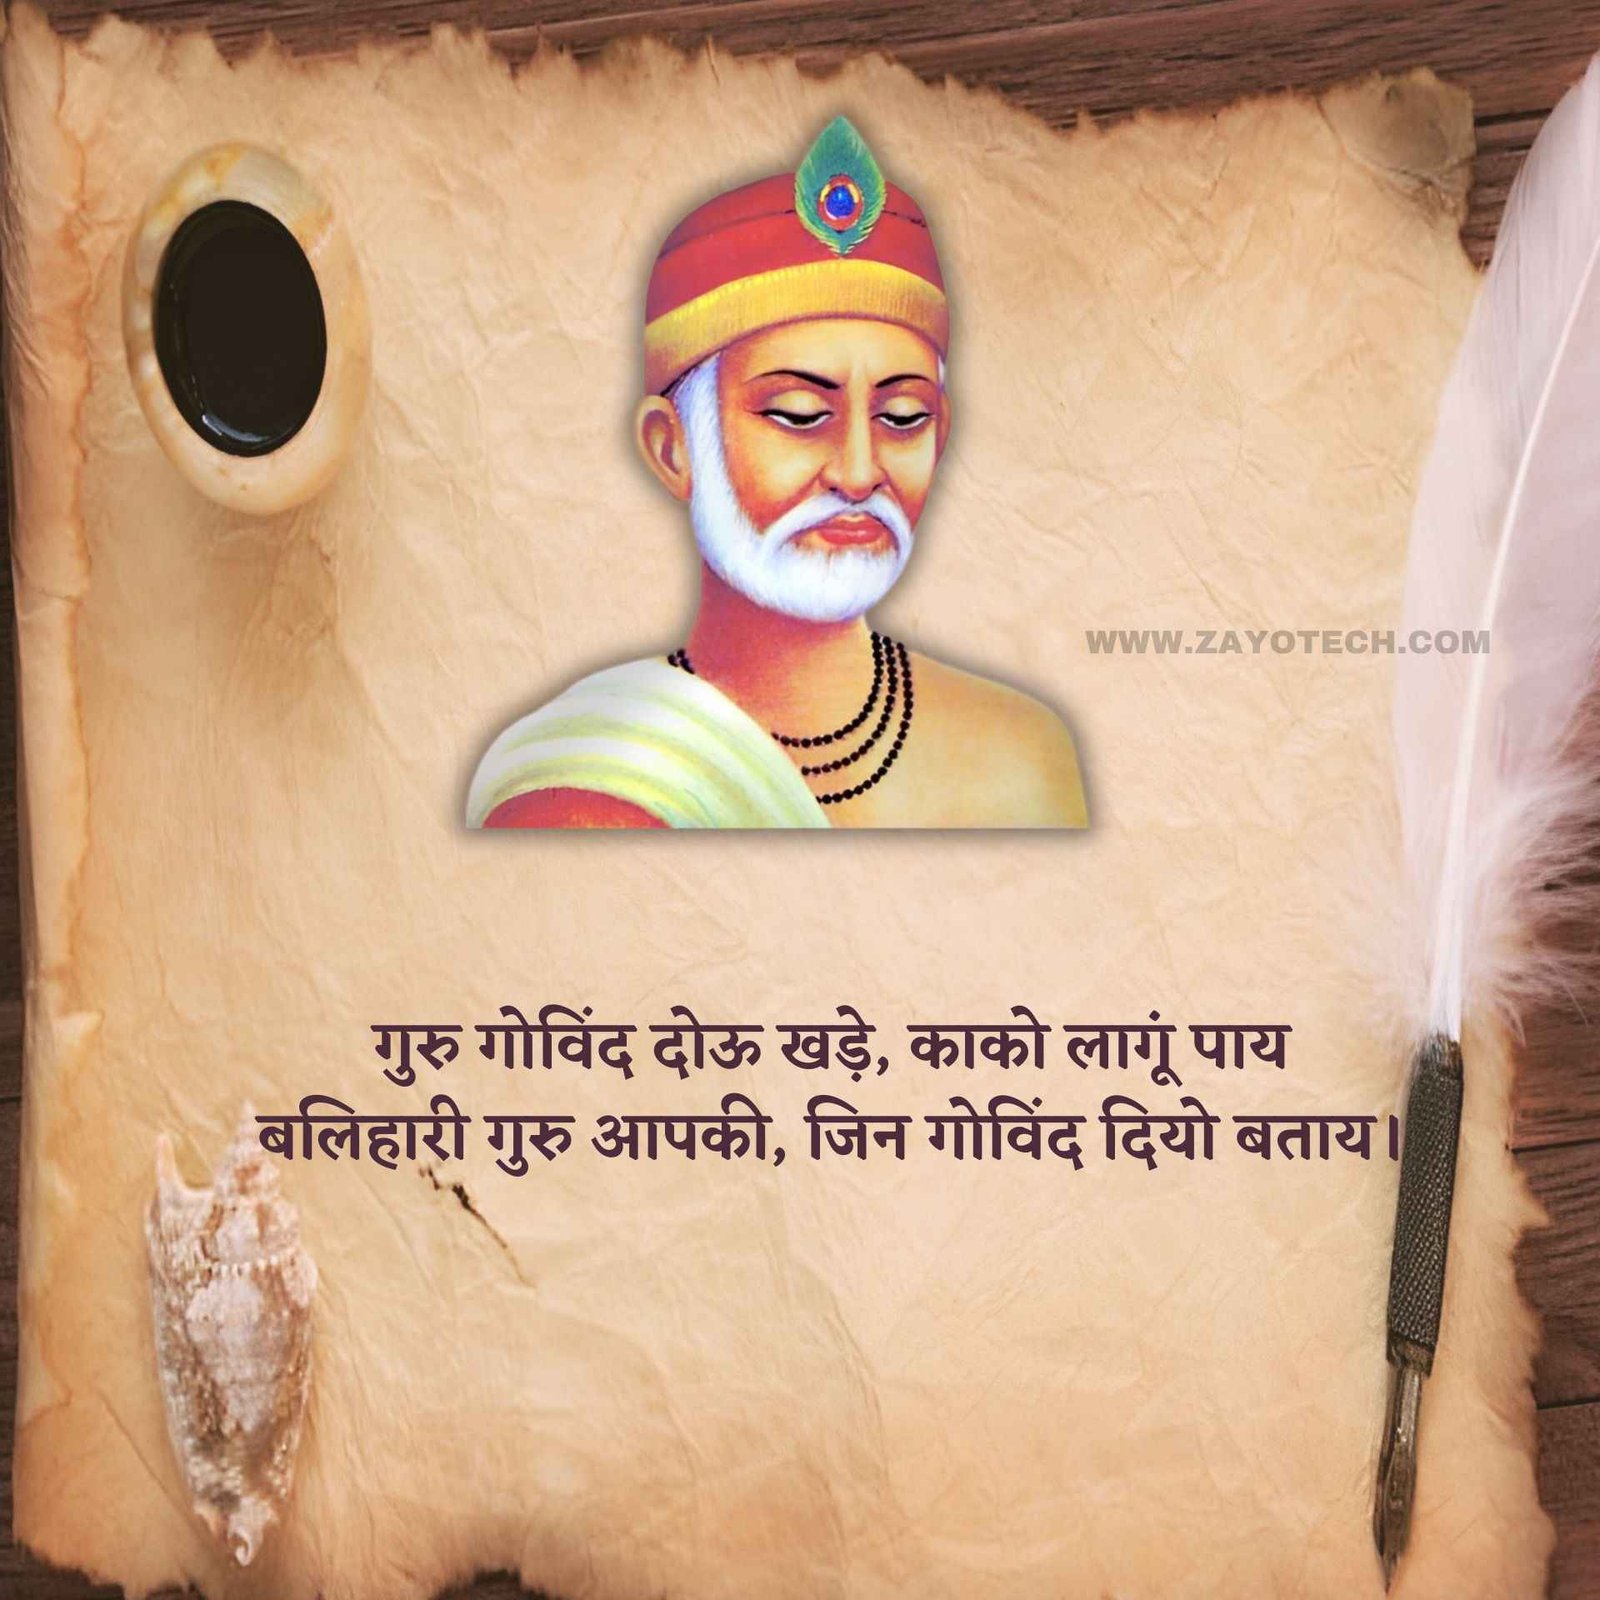 WWW.ZAYOTECH.COM
गुरु गोविंद दोऊ खड़े, काको लागूं पाय
बलिहारी गुरु आपकी, जिन गोविंद दियो बताय।